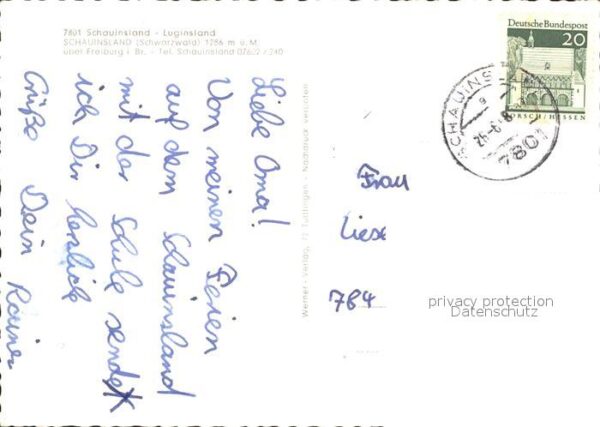 7801 Schauinsland - Luginsland
SCHAUINSLAND (Schwarzwald) 1286 m ü. M.
über Freiburg i. Br. - Tel. Schauinsland 07602 / 240
Liebe Oma!
Von meinen Ferien
auf dem Schauinsland
mit der Schule sende
ich Dir herzliche
Grüße Dein Rainer
Werner-Verlag, 72 Tuttlingen - Nachdruck verboten
Deutsche Bundespost
20
LORSCH/HESSEN
SCHAUINSLAND
7801
Frau
Liese
784
privacy protection
Datenschutz